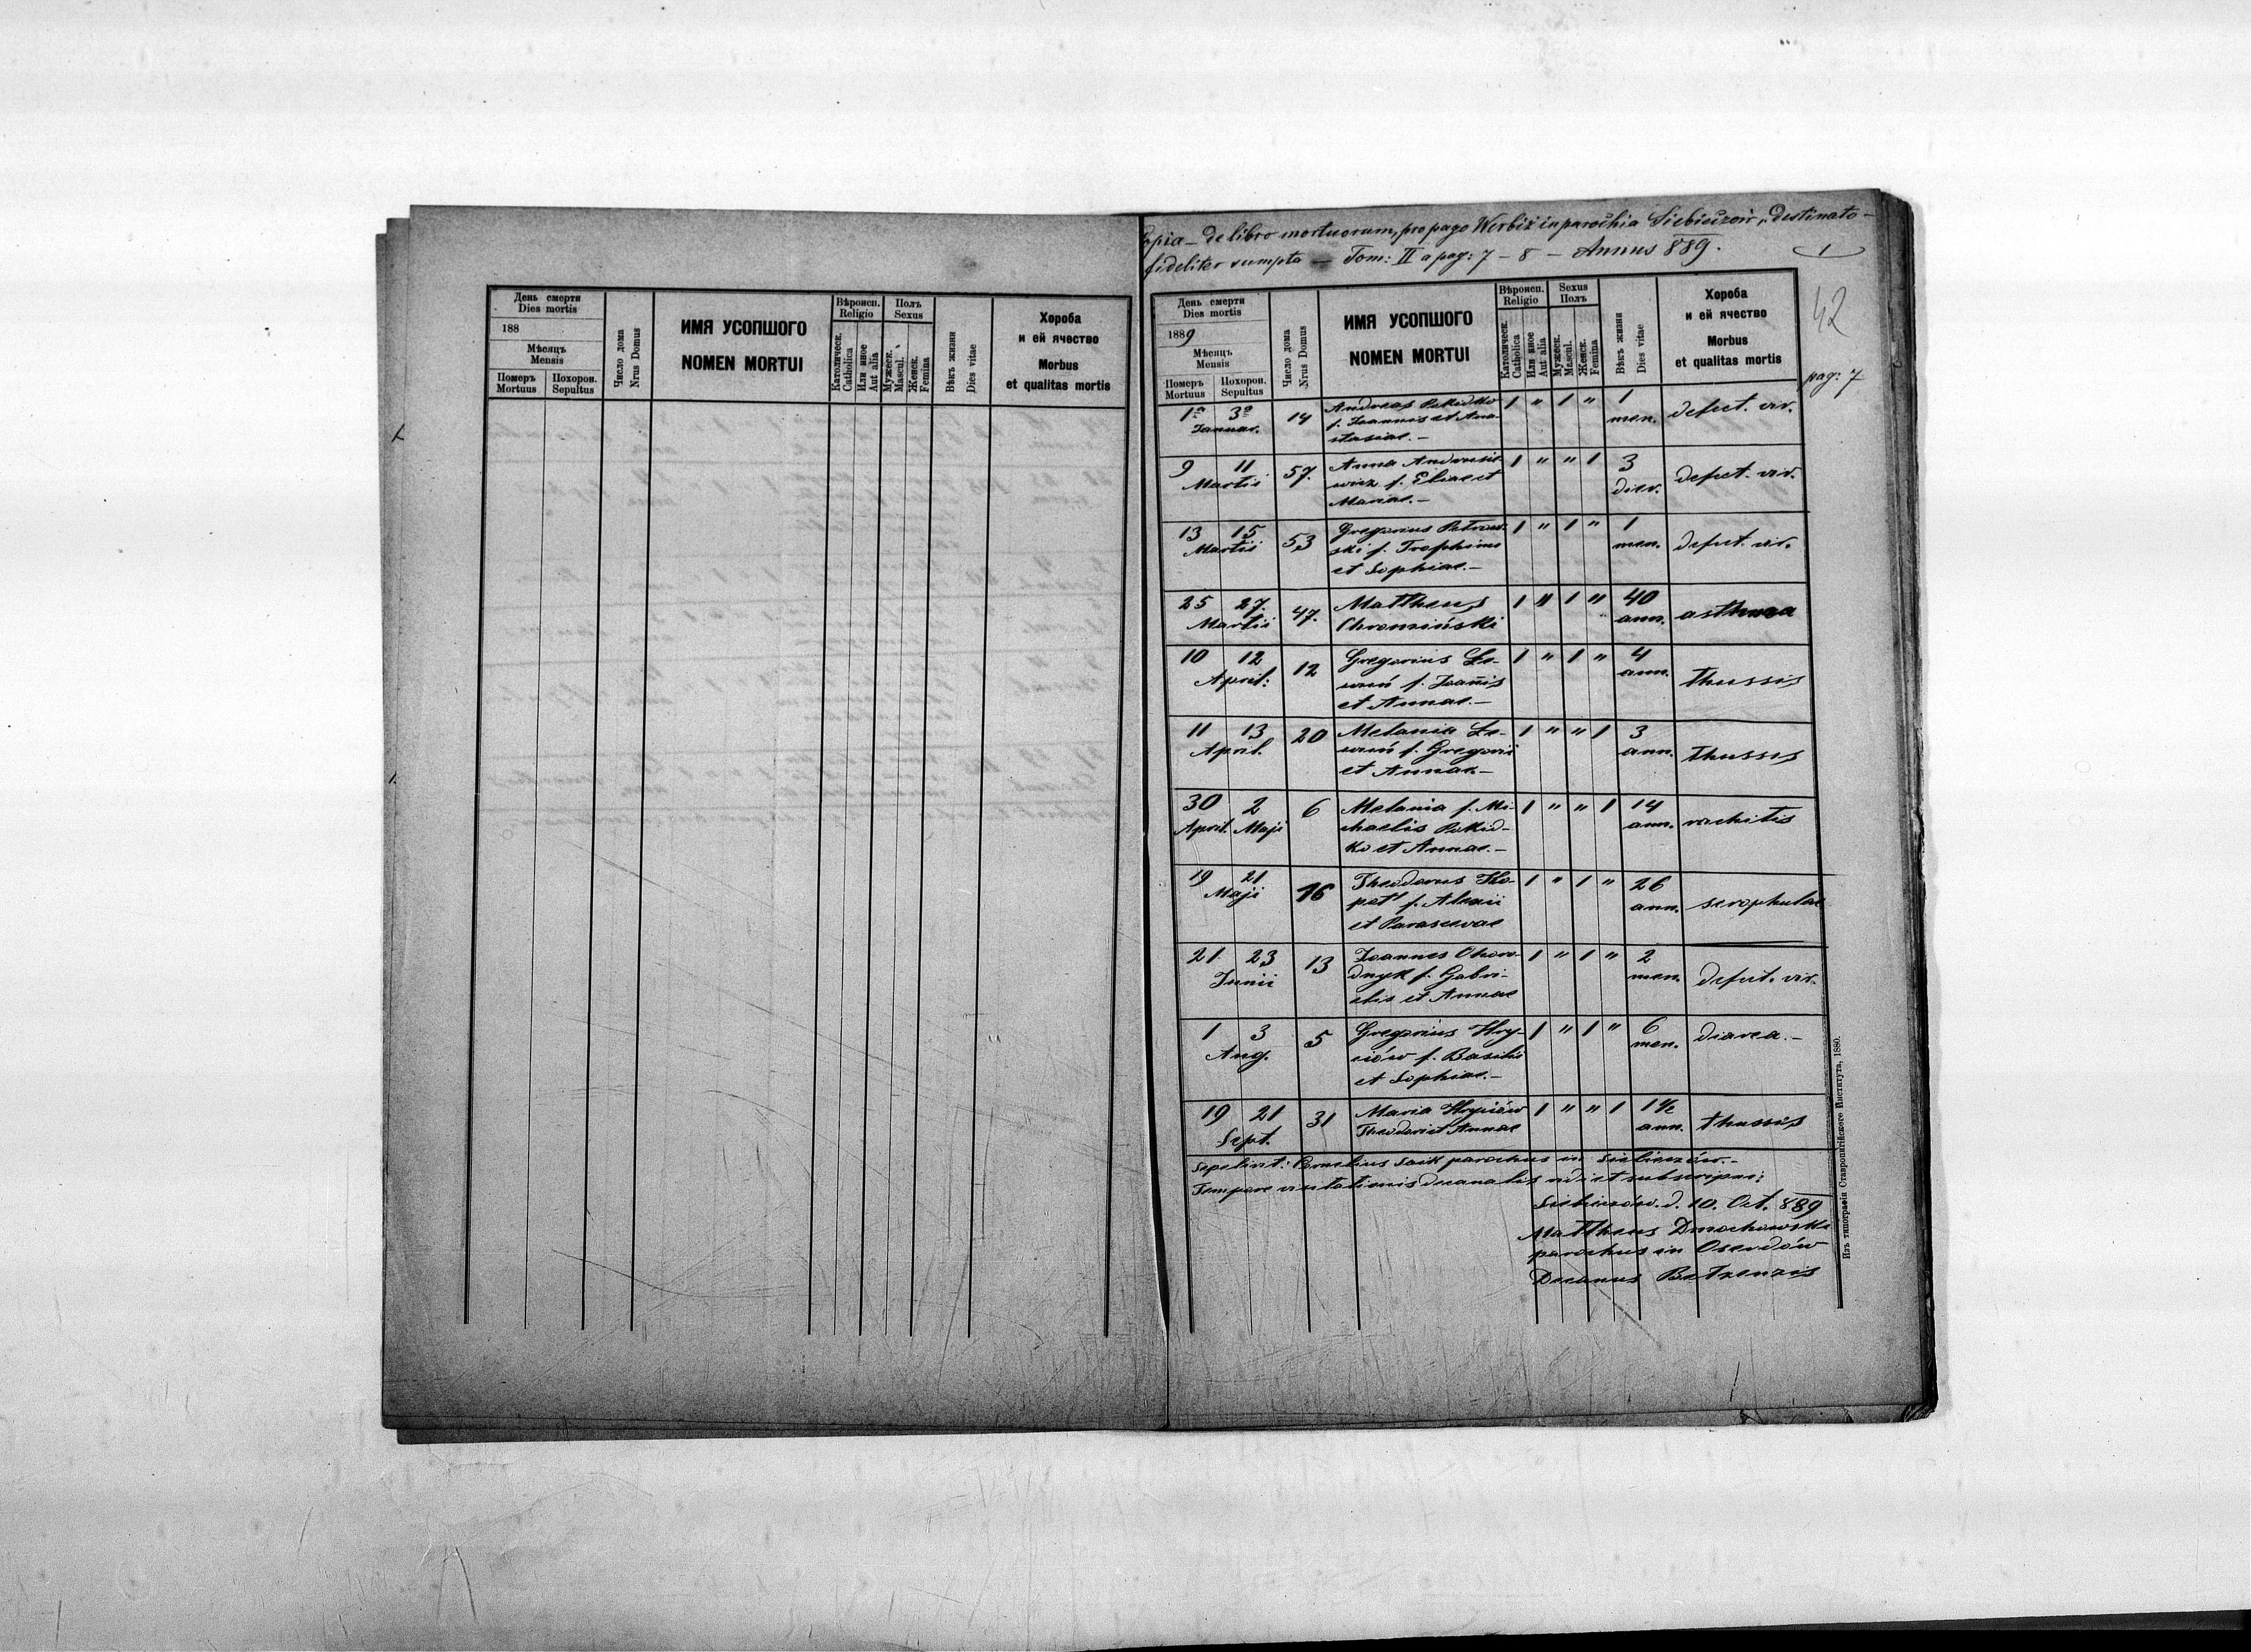 День смерти
Dies mortis
188
Мѣсяцъ
Mensis
Померъ
Mortuus
Похорон.
Sepultus
Число дома
Nrus Domus
ИМЯ УСОПШОГО
NOMEN MORTUI
Вѣроисп.
Religio
Католическ.
Catholica
Или иное
Aut alia
Полъ
Sexus
Мужеск.
Mascul.
Женск.
Femina
Вѣкъ жизни
Dies vitae
Хороба
и ей ячество
Morbus
et qualitas mortis
Copia - de libro mortuorum, pro pago Werbiż in parochia Siebieczów, destinato -
fideliter sumpta - Tom: II a pag: 7 - 8 - Annus 889.
1
42
pag: 7
День смерти
Dies mortis
1889
Мѣсяцъ
Mensis
Померъ
Mortuus
Похорон.
Sepultus
Число дома
Nrus Domus
ИМЯ УСОПШОГО
NOMEN MORTUI
Вѣроисп.
Religio
Католическ.
Catholica
Или иное
Aut alia
Sexus
Полъ
Мужеск.
Mascul.
Женск.
Femina
Вѣкъ жизни
Dies vitae
Хороба
и ей ячество
Morbus
et qualitas mortis
1a 3a 14 Andreas 1 " 1 " 1 defect. vir.
Januar. f. Joannis et Ana- men.
stasiae. -
9 11 57. Anna Androsie- 1 " " 1 3 defect. vir.
Martii wicz f. Eliae et dier.
Mariae. -
13 15 53 Gregorius Petrow- 1 " 1 " 1 defect. vir.
Martii ski f. Trophimi men.
et Sophiae. -
25 27. 47. Mattheus 1 " 1 " 40 asthma
Martii Chromiński ann.
10 12 12 Gregorius Le- 1 " 1 " 4 thussis
April: wuń f. Joañis ann.
et Annae. -
11 13 20 Melania Le- 1 " " 1 3 thussis
April. wuń f. Gregorii ann.
et Annae. -
30 2 6 Melania f. Mi- 1 " " 1 14 rachitis
April. Maji chaelis ann.
et Annae. -
19 21 16 Theodorus 1 " 1 " 26 scrophulae
Maji f. Alexii ann.
et Parascevae
21 23 13 Joannes Ohoro- 1 " 1 " 2 defect. vir.
Junii dnyk f. Gabri- men.
elis et Annae
1 3 5 Gregorius Hry- 1 " 1 " 6 diarea. -
Aug. ciów f. Basilii men.
et Sophiae. -
19 21 31 Maria Hryciów 1 " " 1 1 1/2 thussis
Sept. Theodori et Annae ann.
Sepelivit: Cornelius Saik parochus in Siebieczów. -
Tempore visitationis decanalis vidi et subscripsi:
Siebieczów. d. 10. Oct. 889
Mattheus Dmochowski
parochus in Oserdów
Decanus Betzensis
Изъ типографіи Ставропигійского Института, 1880.